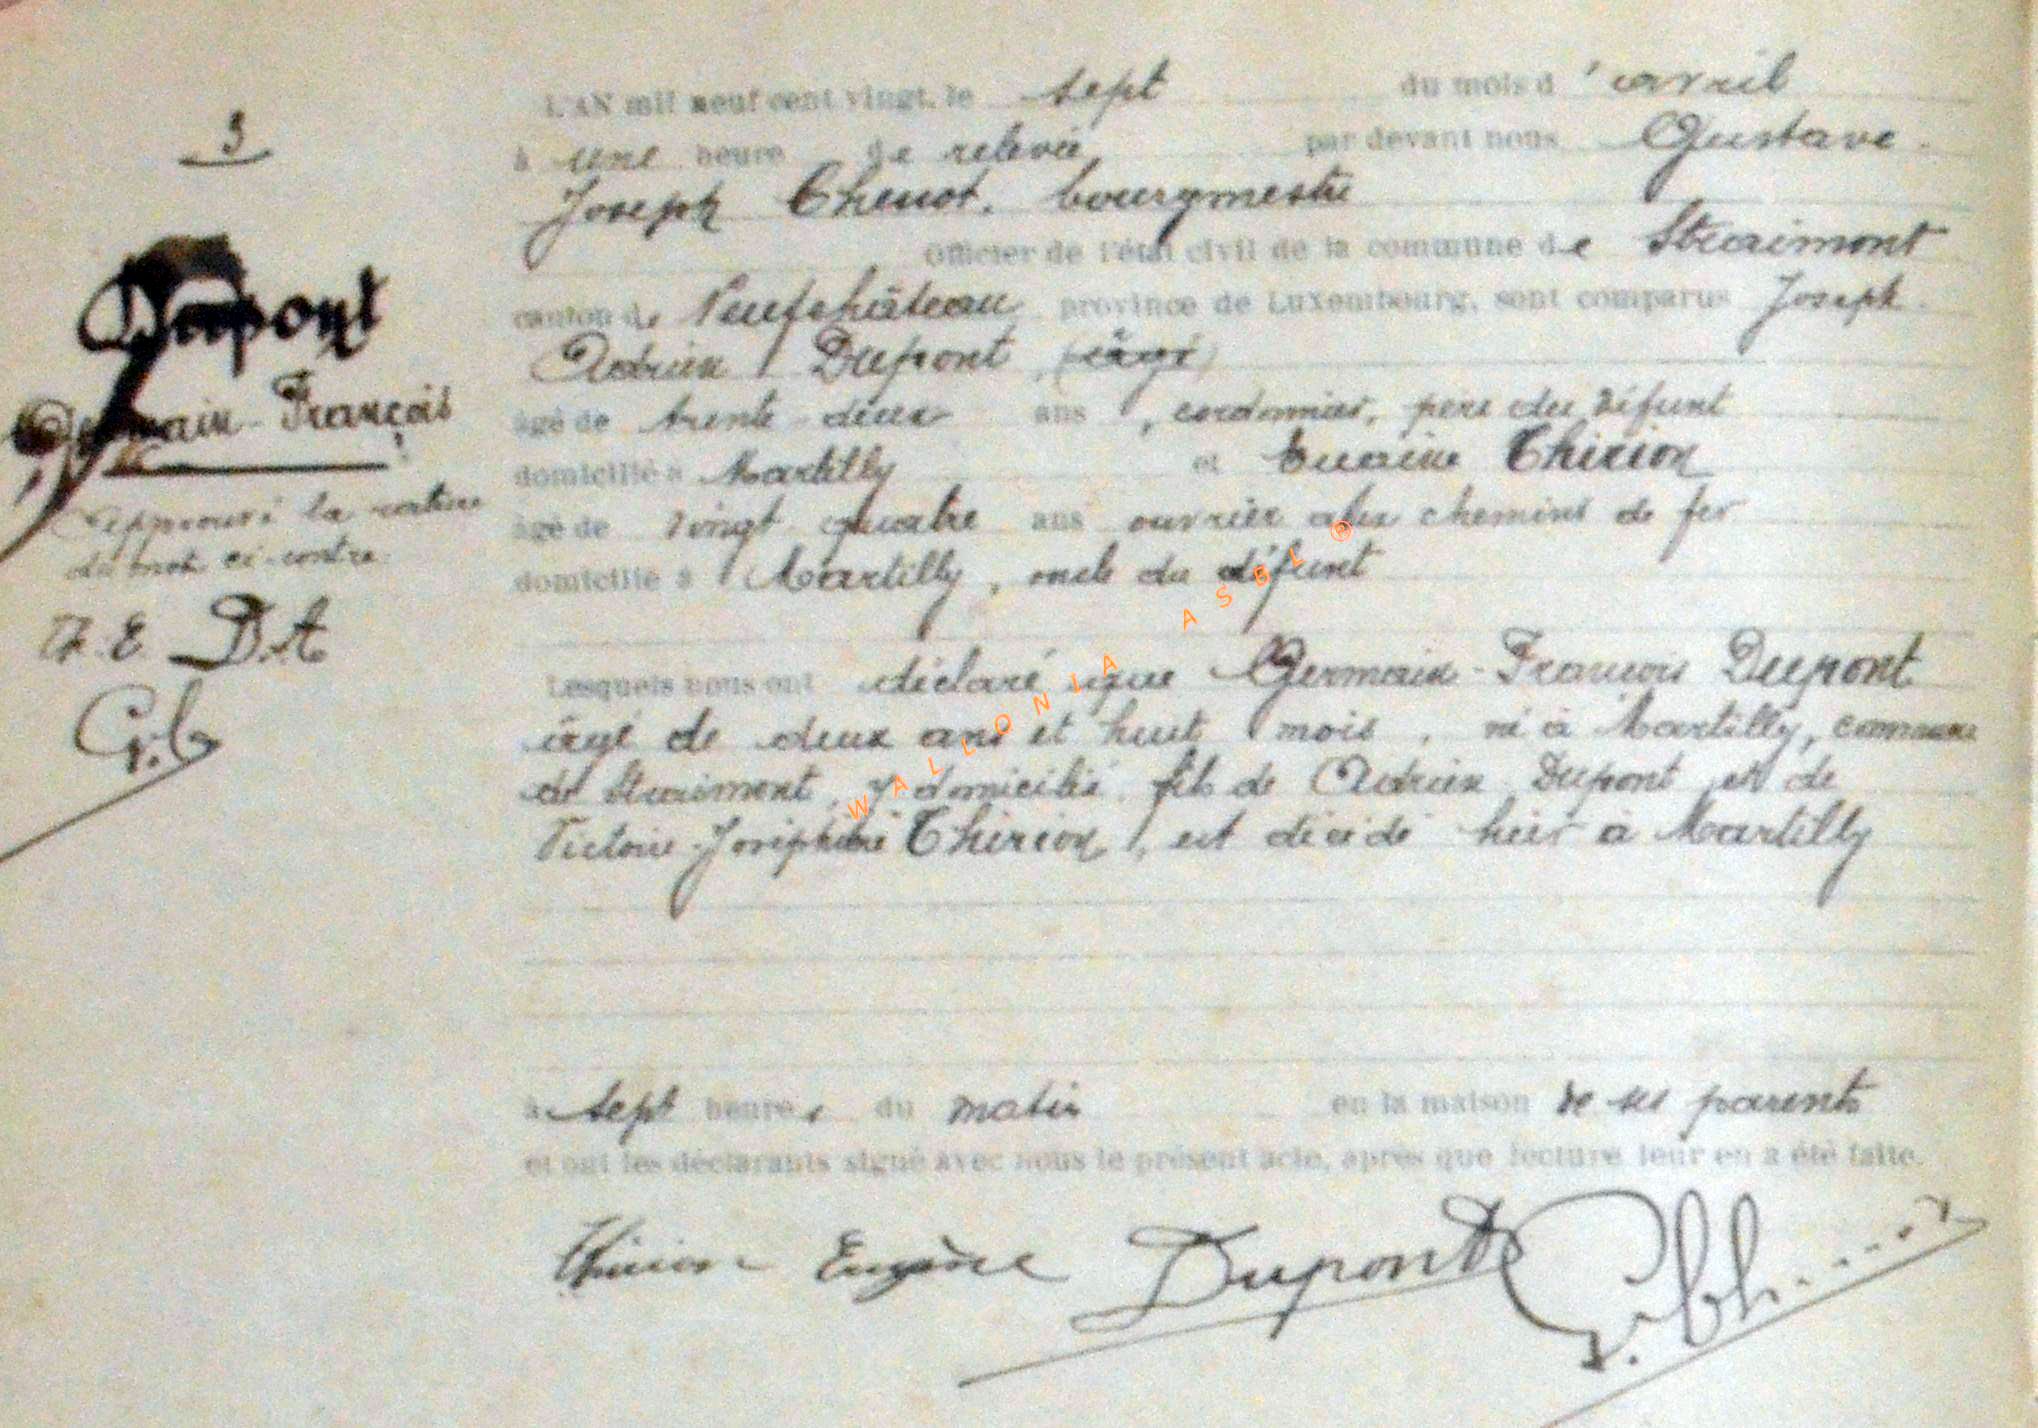 3
Dupont
Germain-François
Approuvé la rature
du mot ci-contre
T. E. D.A
G.C
L'AN mil neuf cent vingt, le sept du mois d'avril
à une heure de relevée par devant nous Gustave
Joseph Chenot, bourgmestre
Officier de l'état civil de la commune de Straimont
canton de Neufchâteau province de Luxembourg, sont comparus Joseph
Adrien Dupont, (âgé)
âgé de trente deux ans, cordonnier, père du défunt
domicilié à Martilly et Thirion
âgé de vingt quatre ans ouvrier aux chemins de fer
domicilié à Martilly, oncle du défunt
Lesquels nous ont déclaré que Germain-François Dupont
âgé de deux ans et huit mois, né à Martilly, commune
de Straimont, y domicilié, fils de Adrien Dupont et de
Victoire-Joséphine Thirion, est décédé hier à Martilly
à sept heures du matin en la maison de ses parents
et ont les déclarants signé avec nous le présent acte, après que lecture leur en a été faite.
Thirion Eugène Dupont
WALLONIA ASBL ®